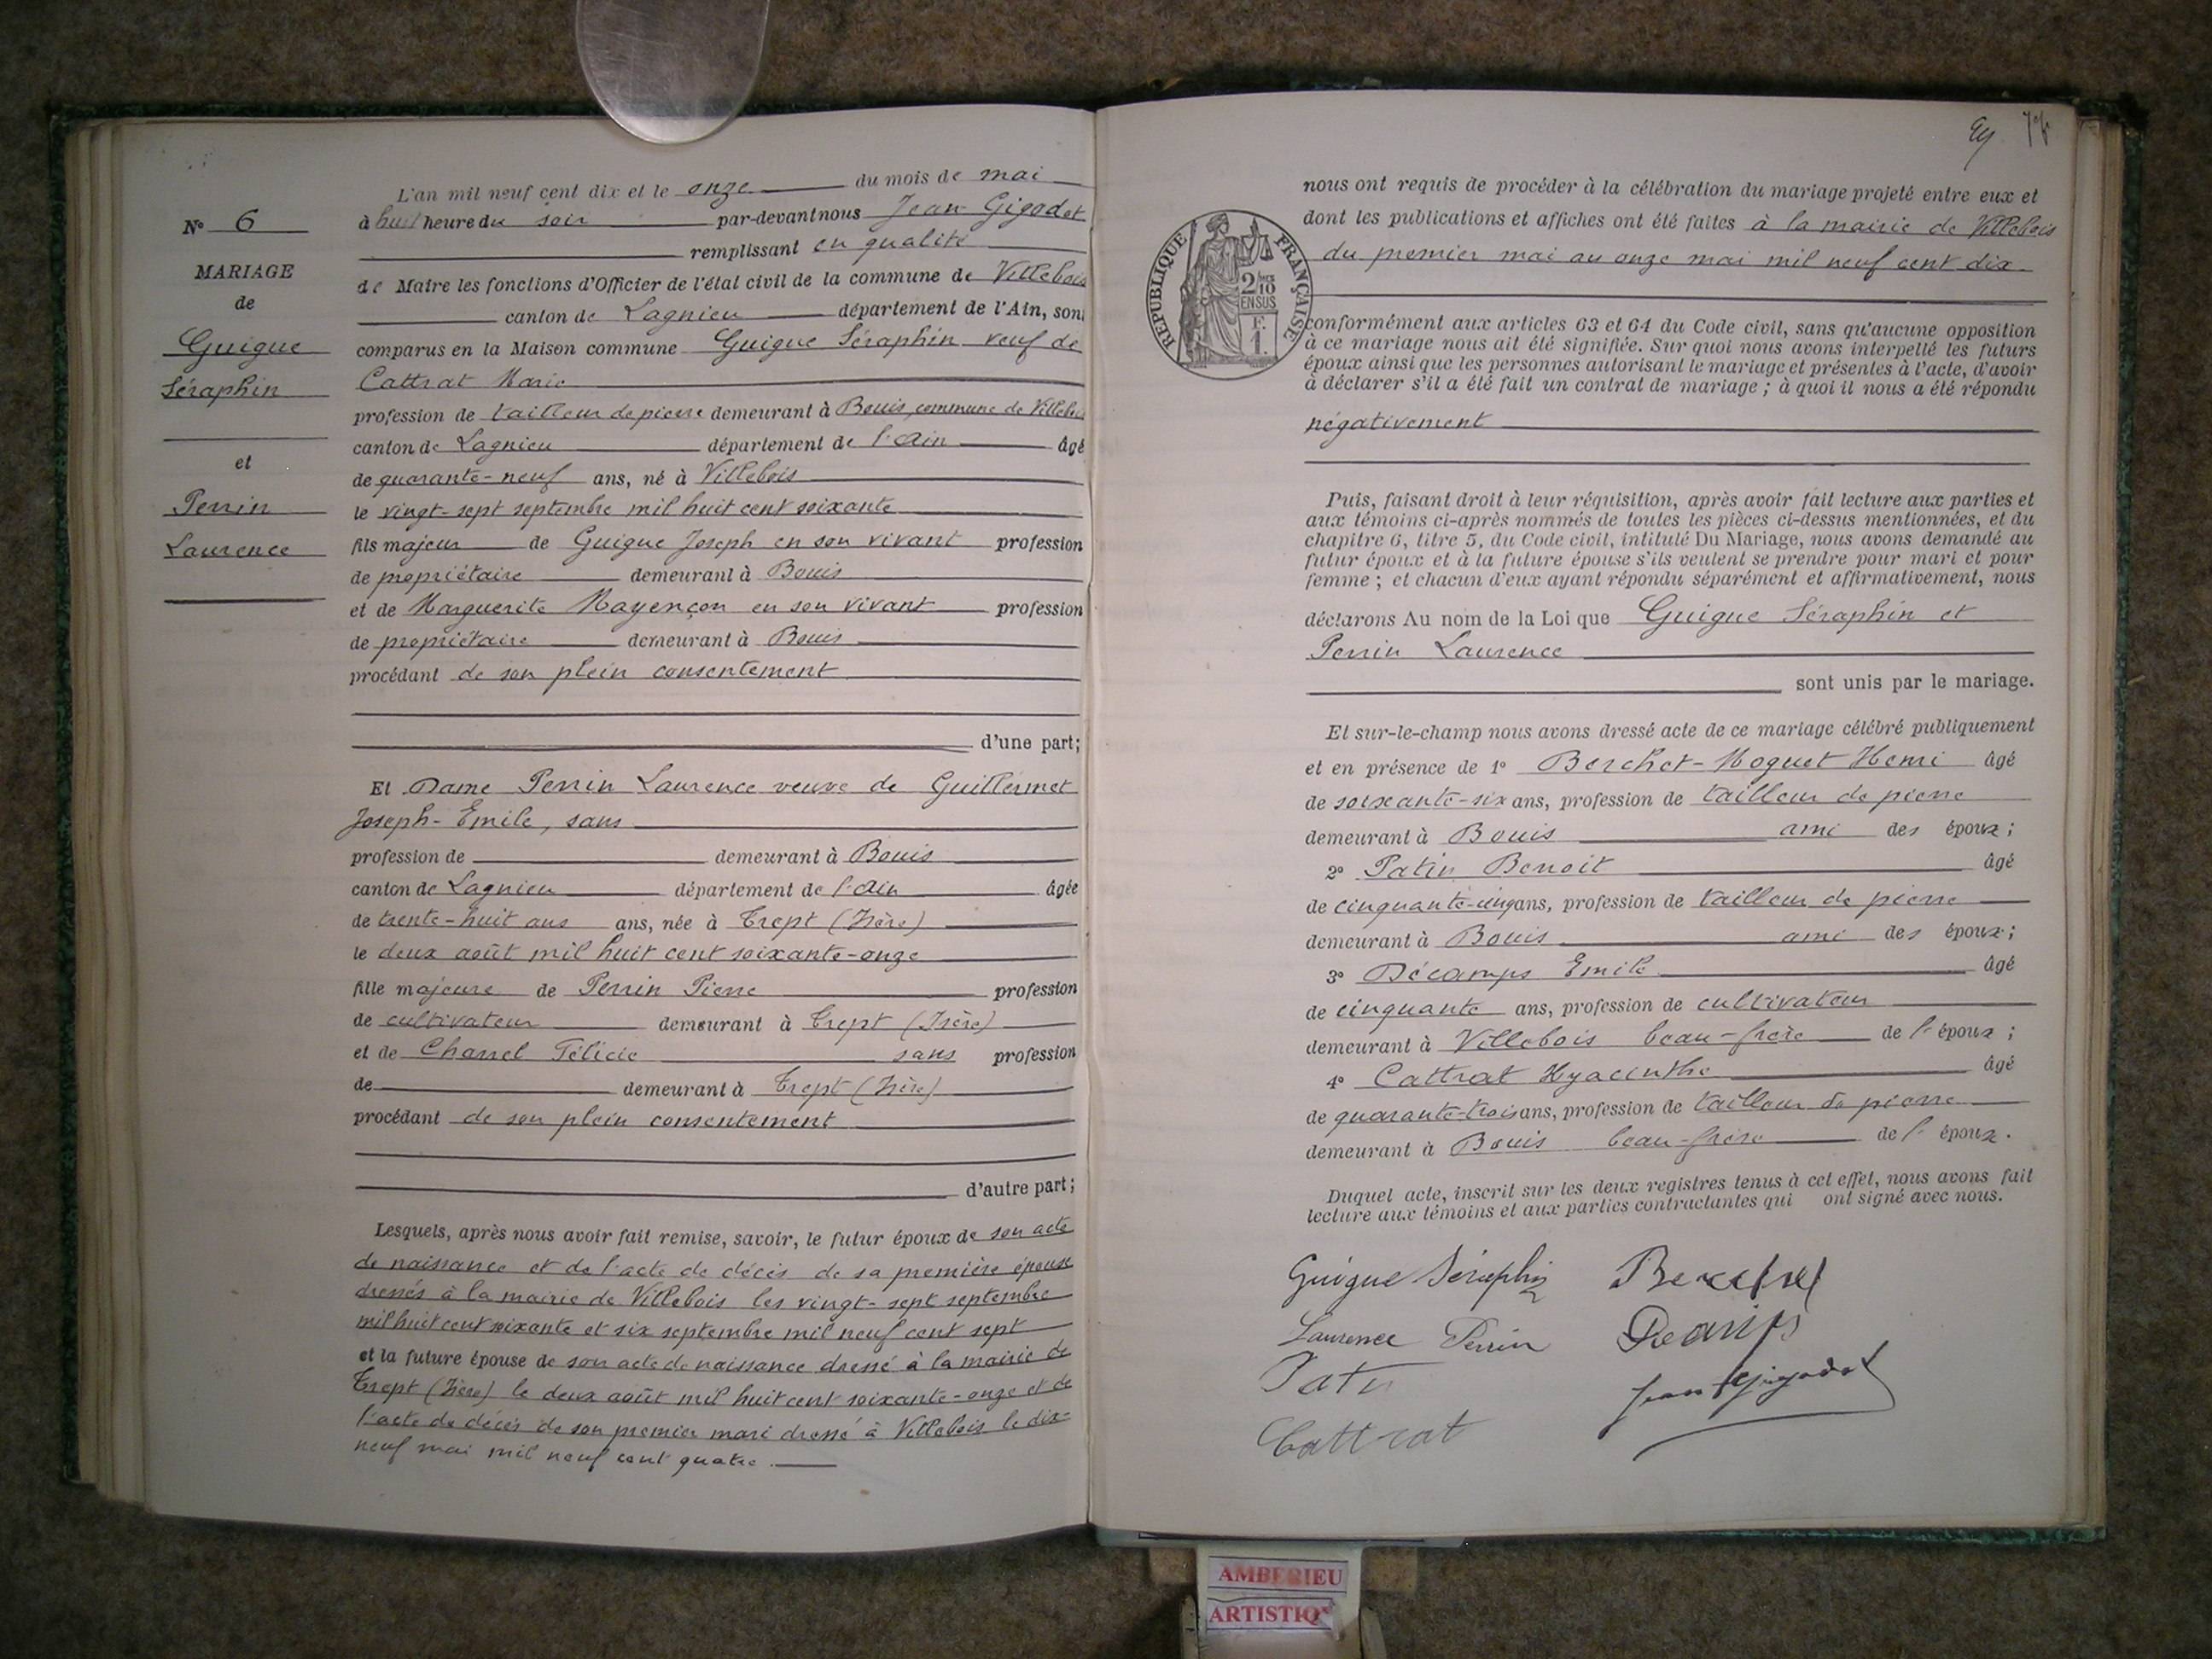 L'an mil neuf cent dix et le onze du mois de mai
à huit heure du soir par-devant nous Jean Gigodot
remplissant en qualité
de Maire les fonctions d'Officier de l'état civil de la commune de Villebois
canton de Lagnieu département de l'Ain, sont
comparus en la Maison commune Guigue Séraphin veuf de
Cattrat Marie
profession de tailleur de pierre demeurant à Bouis, commune de Villebois
canton de Lagnieu département de l'Ain âgé
de quarante-neuf ans, né à Villebois
le vingt-sept septembre mil huit cent soixante
fils majeur de Guigue Joseph en son vivant profession
de propriétaire demeurant à Bouis
et de Marguerite Mayençon en son vivant profession
de propriétaire demeurant à Bouis
procédant de son plein consentement
d'une part;
Et Dame Perrin Laurence veuve de Guillermet
Joseph-Emile, sans
profession de demeurant à Bouis
canton de Lagnieu département de l'Ain âgée
de trente-huit ans ans, née à Trept (Isère)
le deux août mil huit cent soixante-onze
fille majeure de Perrin Pierre profession
de cultivateur demeurant à Trept (Isère)
et de Charrel Félicie sans profession
de demeurant à Trept (Isère)
procédant de son plein consentement
d'autre part;
Lesquels, après nous avoir fait remise, savoir, le futur époux de son acte
de naissance et de l'acte de décès de sa première épouse
dressés à la mairie de Villebois les vingt-sept septembre
mil huit cent soixante et six septembre mil neuf cent sept
et la future épouse de son acte de naissance dressé à la mairie de
Trept (Isère) le deux août mil huit cent soixante-onze et de
l'acte de décès de son premier mari dressé à Villebois le dix-
neuf mai mil neuf cent quatre.
N° 6
MARIAGE
de
Guigue
Séraphin
et
Perrin
Laurence
nous ont requis de procéder à la célébration du mariage projeté entre eux et
dont les publications et affiches ont été faites à la mairie de Villebois
du premier mai au onze mai mil neuf cent dix
REPUBLIQUE FRANÇAISE
2/10
EN SUS
F.
1.
conformément aux articles 63 et 64 du Code civil, sans qu'aucune opposition
à ce mariage nous ait été signifiée. Sur quoi nous avons interpellé les futurs
époux ainsi que les personnes autorisant le mariage et présentes à l'acte, d'avoir
à déclarer s'il a été fait un contrat de mariage ; à quoi il nous a été répondu
négativement
Puis, faisant droit à leur réquisition, après avoir fait lecture aux parties et
aux témoins ci-après nommés de toutes les pièces ci-dessus mentionnées, et du
chapitre 6, titre 5, du Code civil, intitulé Du Mariage, nous avons demandé au
futur époux et à la future épouse s'ils veulent se prendre pour mari et pour
femme ; et chacun d'eux ayant répondu séparément et affirmativement, nous
déclarons Au nom de la Loi que Guigue Séraphin et
Perrin Laurence
sont unis par le mariage.
Et sur-le-champ nous avons dressé acte de ce mariage célébré publiquement
et en présence de 1° Berchet-Moguet Henri âgé
de soixante-six ans, profession de tailleur de pierre
demeurant à Bouis ami des époux ;
2° Patin Benoit âgé
de cinquante-cinq ans, profession de tailleur de pierre
demeurant à Bouis ami des époux ;
3° Décamps Emile âgé
de cinquante ans, profession de cultivateur
demeurant à Villebois beau-frère de l'époux ;
4° Cattrat Hyacinthe âgé
de quarante-trois ans, profession de tailleur de pierre
demeurant à Bouis beau-frère de l'époux.
Duquel acte, inscrit sur les deux registres tenus à cet effet, nous avons fait
lecture aux témoins et aux parties contractantes qui ont signé avec nous.
Guigue Séraphin
Laurence Perrin
Cattrat
Jean Gigodot
AMBERIEU
ARTISTIQ